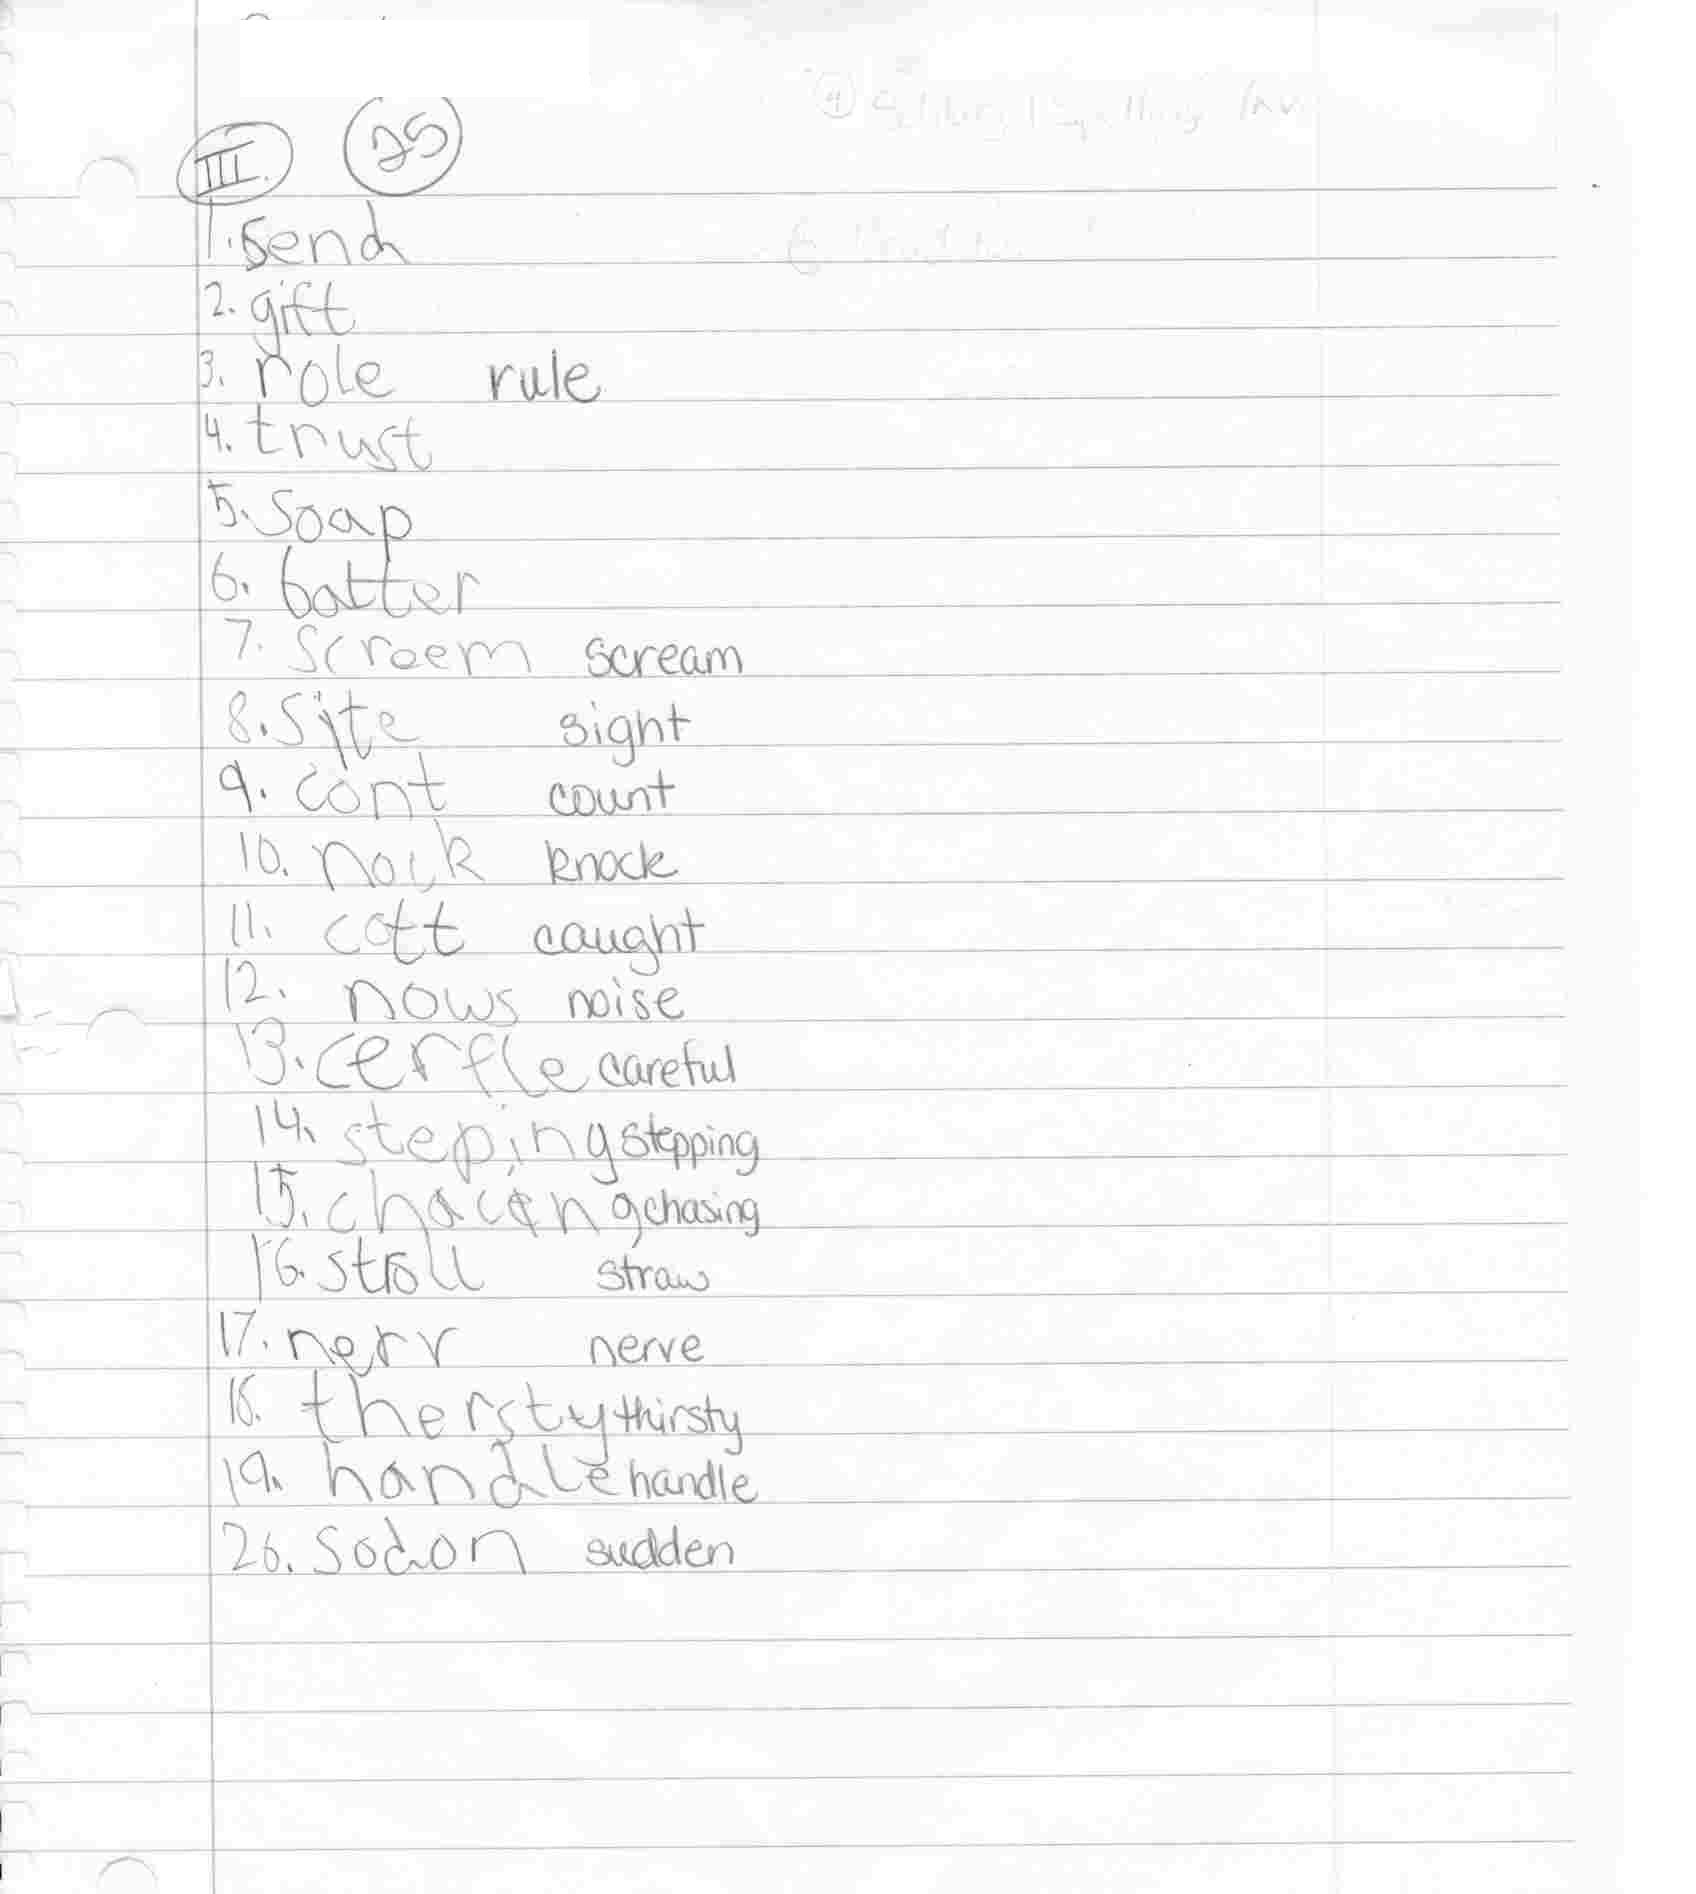 III. 25
1. send
2. gift
3. role rule
4. trust
5. soap
6. batter
7. screem scream
8. site sight
9. cont count
10. nock knock
11. cott caught
12. nows noise
13. cerfle careful
14. steping stepping
15. chacing chasing
16. stroll straw
17. nerv nerve
18. thersty thirsty
19. handle handle
20. sodon sudden